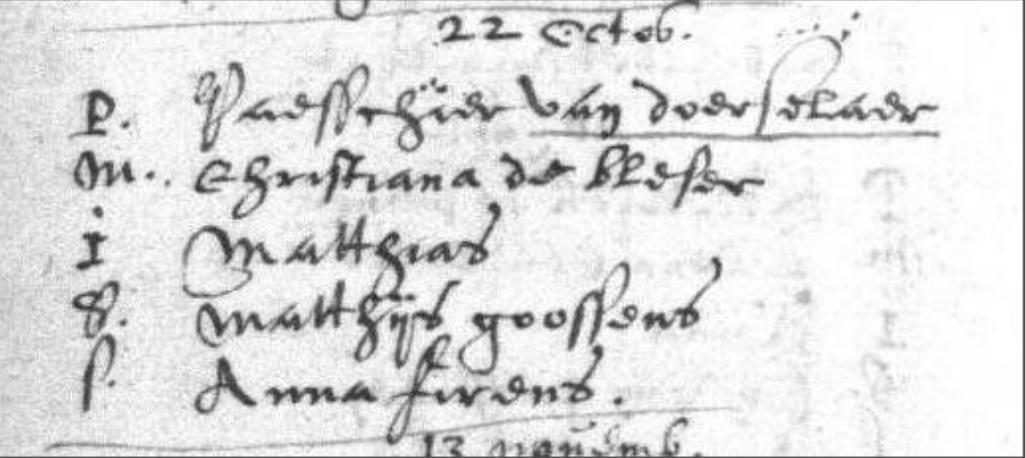 22 Octob.
P. Paesschier van doerselaer
M. Christiana de bleser
I Matthias
S. Matthijs goossens
S. Anna firens.
13 novemb.